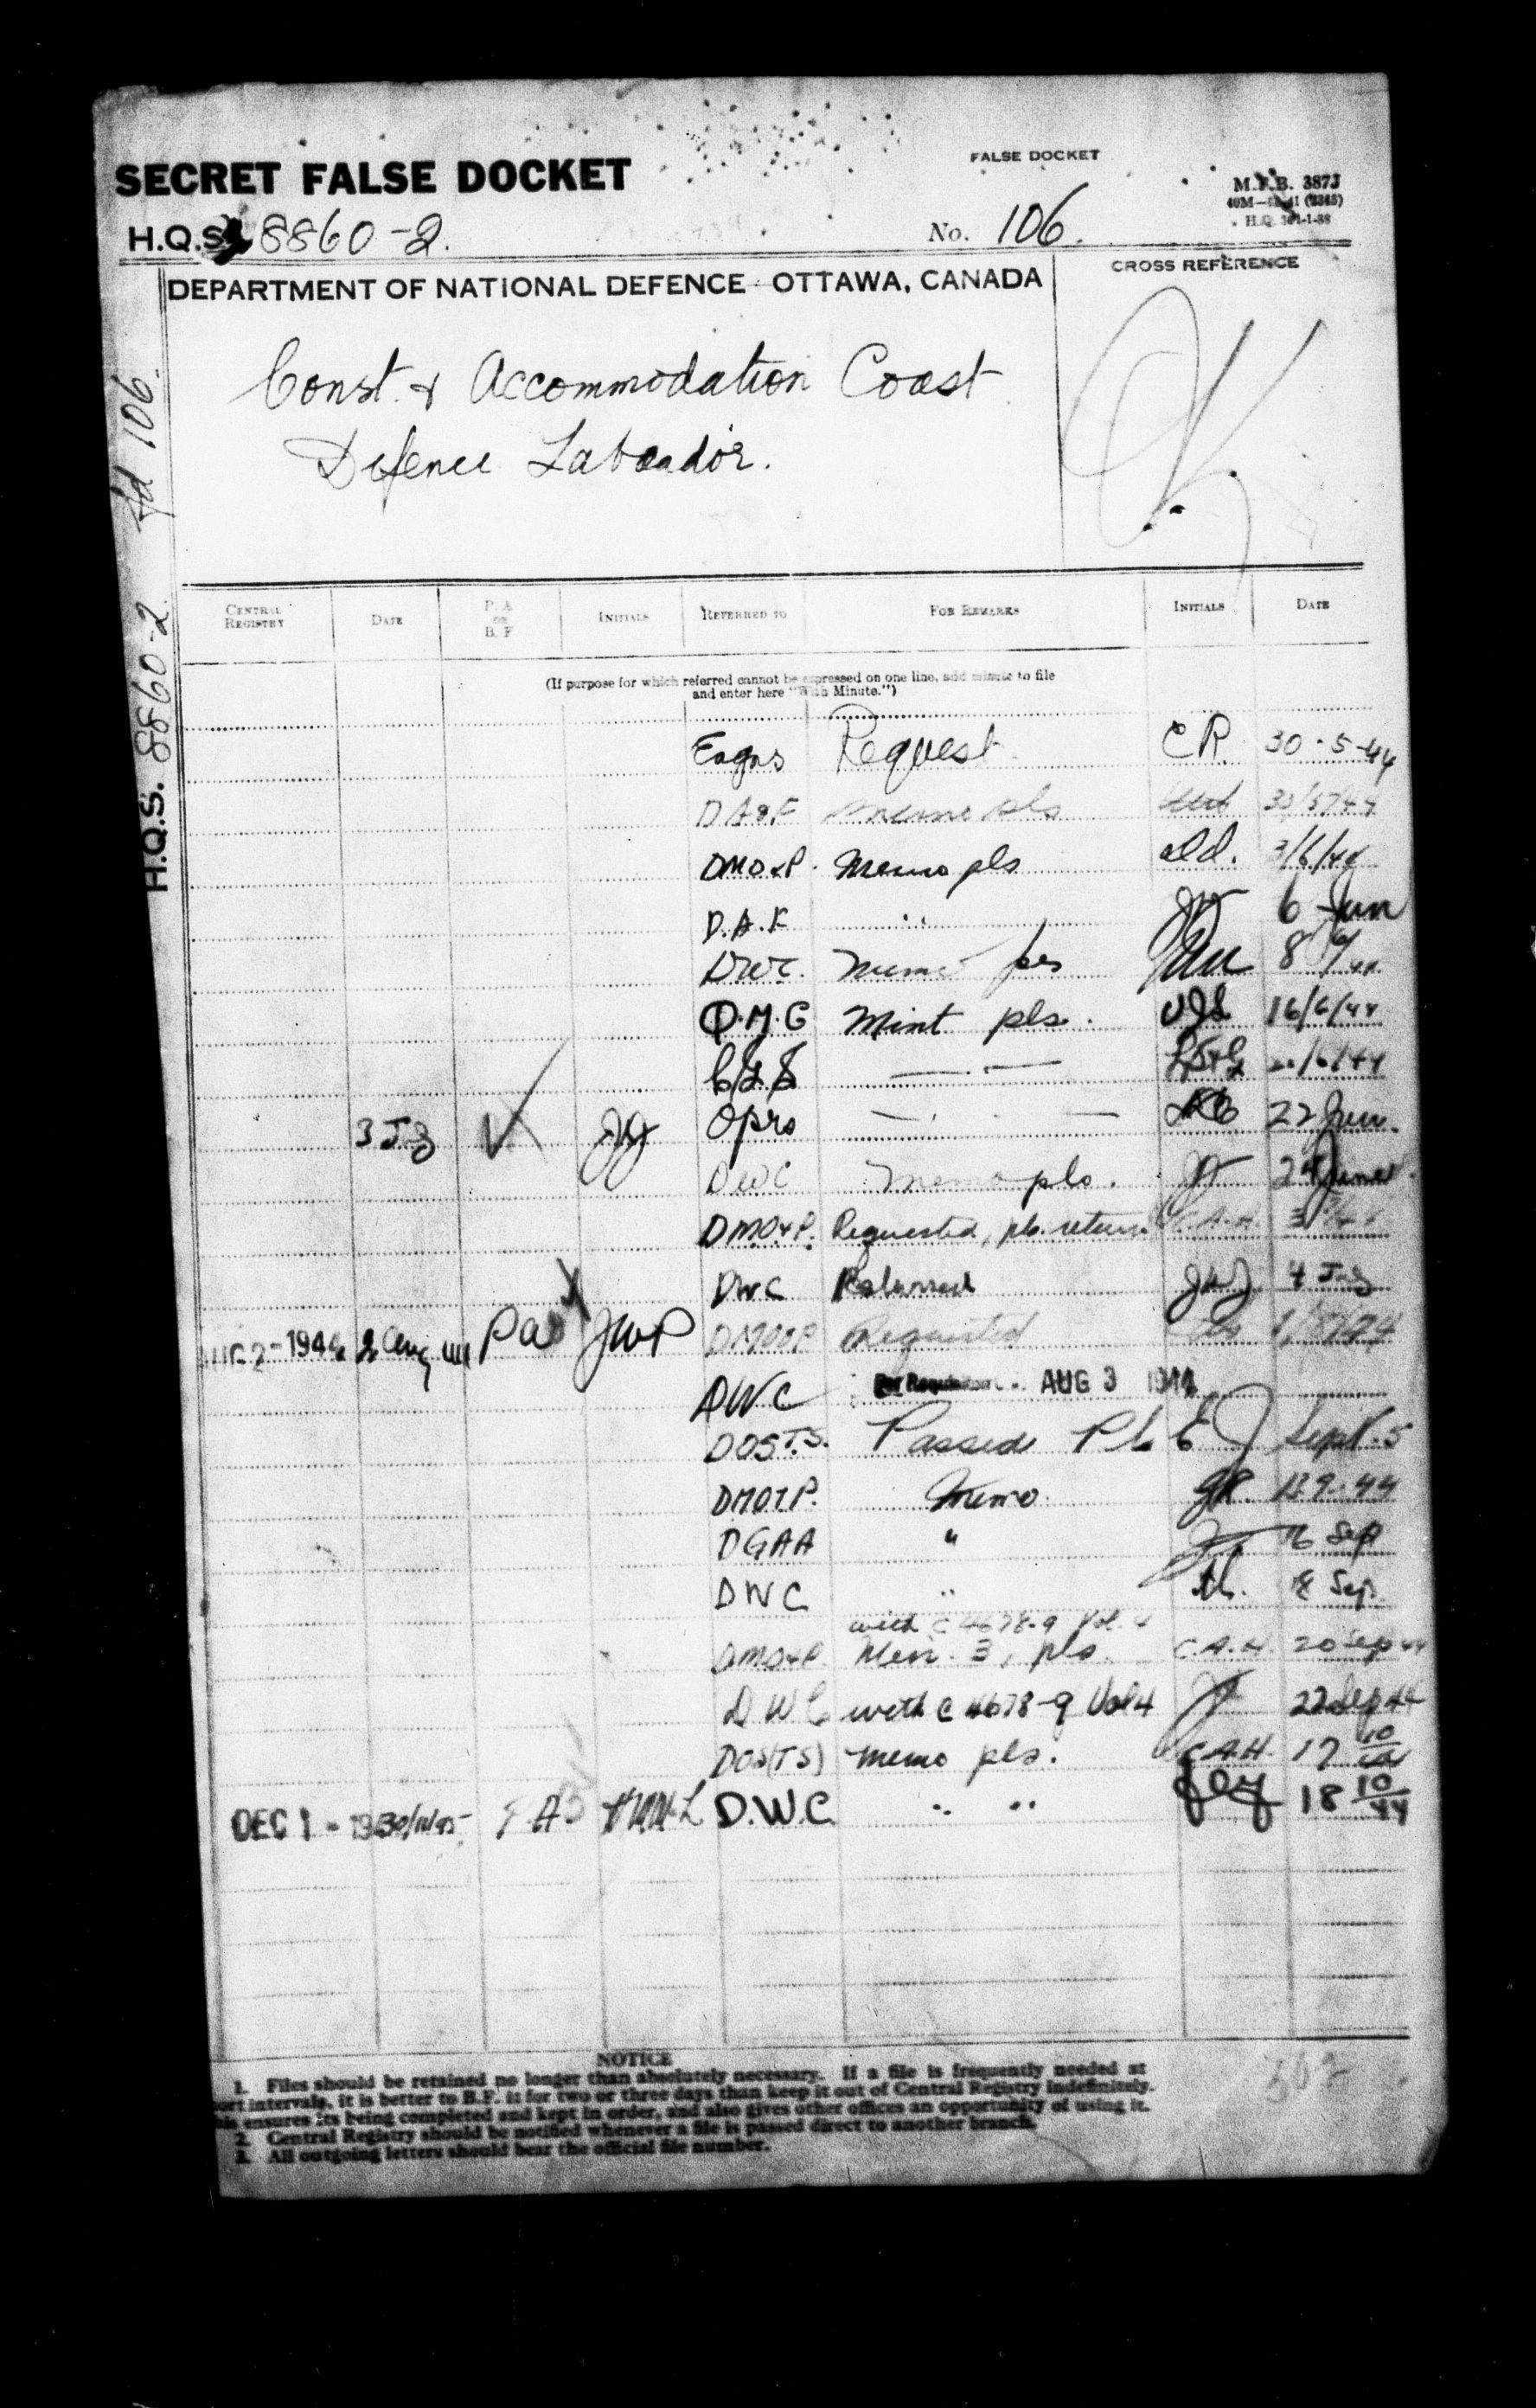 SECRET FALSE DOCKET
FALSE DOCKET
M.F.B. 387J
H.Q.S. 8860-2.
No. 106.
DEPARTMENT OF NATIONAL DEFENCE OTTAWA, CANADA
CROSS REFERENCE
Const. & Accommodation Coast
Defence Labrador.
H.Q.S. 8860-2 fd 106.
CENTRAL REGISTRY DATE P. A. OR B. F. INITIALS REFERRED TO FOR REMARKS INITIALS DATE
(If purpose for which referred cannot be expressed on one line, add minute to file
and enter here "With Minute.")
Engrs Request CR. 30-5-44
DA&F memo pls 30/5/44
DMO&P. Memo pls 3/6/44
D.A.F " 6 Jun
DWC. memo pls 8
Q.M.G Mint pls. 16/6/44
CGS
3 Jul Oprs 22 Jun.
DWC memo pls. 24 June
DMO&P. Requested, pls. return C.A.H. 3
DWC Returned 4 Jul
1944 2 Aug 44 Pa JWP DMO&P Requested
DWC AUG 3 1944
DOST.S. Passed Pl Sept. 5
DMO&P. Memo 13.9.44
DGAA " 16 Sep
DWC " 18 Sep
with C 4678-9 Vol. 4
DMO&P. Min. 3, pls C.A.H. 20 Sep 44
DWC with C 4678-9 Vol 4 22 Sep 44
DOS(TS) memo pls. C.A.H. 17 10/44
DEC 1 - PA D.W.C. " " 18 10/44
NOTICE
1. Files should be retained no longer than absolutely necessary. If a file is frequently needed at
ort intervals, it is better to B.F. it for two or three days than keep it out of Central Registry indefinitely.
his ensures its being completed and kept in order, and also gives other offices an opportunity of using it.
2. Central Registry should be notified whenever a file is passed direct to another branch.
3. All outgoing letters should bear the official file number.